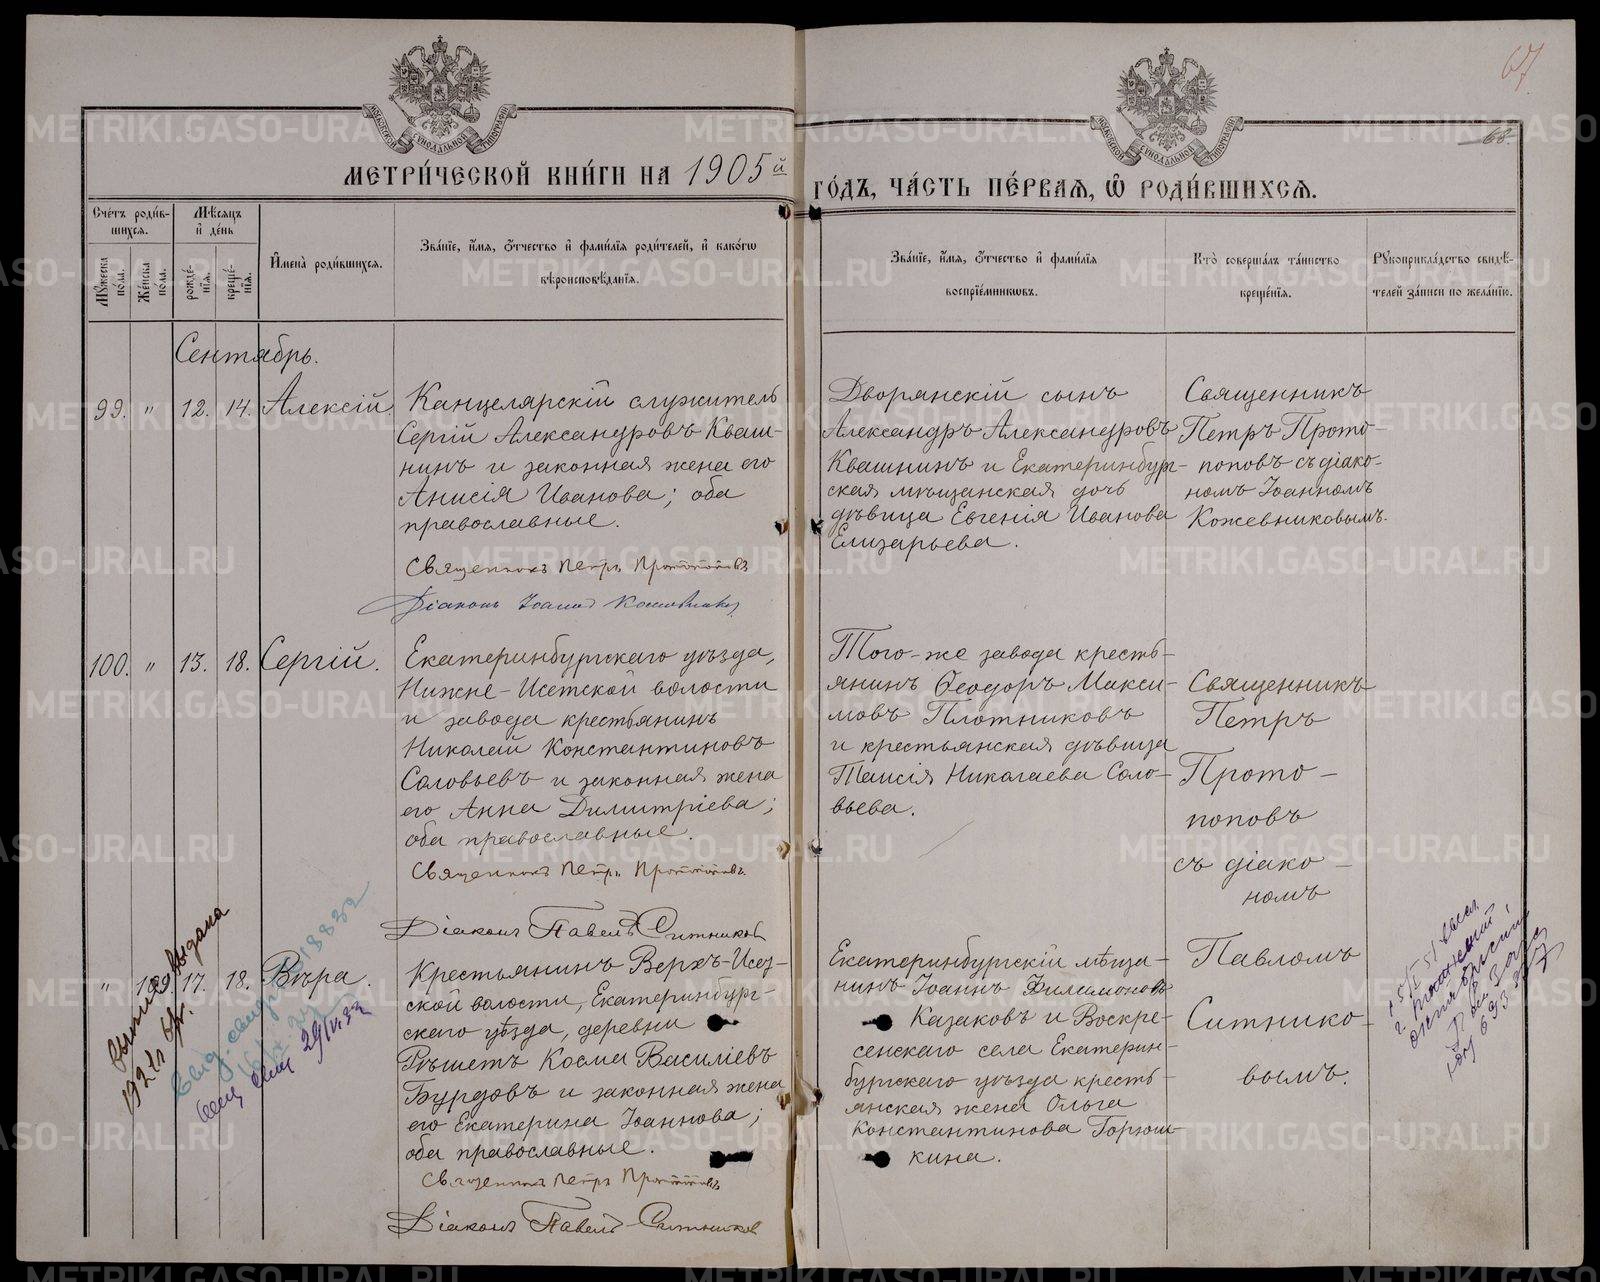 67
68.
МЕТРИ́ЧЕСКОЙ КНИ́ГИ НА 1905й
ГО́ДЪ, ЧА́СТЬ ПЕ́РВАѦ, Ѽ РОДИ́ВШИХСѦ.
Сче́тъ роди́в-
шихсѧ.
Мꙋжеска по́ла.
Же́нска по́ла.
Мѣ́сѧцъ
и҆ де́нь
рожде́-
нїѧ.
креще́-
нїѧ.
И҆мена̀ роди́вшихсѧ.
Зва́нїе, и҆́мѧ, ѻ҆́тчество и҆ фами́лїѧ роди́телей, и҆ како́гѡ
вѣроисповѣ́данїѧ.
Зва́нїе, и҆́мѧ, ѻ҆́тчество и҆ фами́лїѧ
воспрїе́мникѡвъ.
Кто̀ соверша́лъ та́инство
креще́нїѧ.
Рꙋкоприкла́дство свидѣ́-
телей за́писи по жела́нїю.
Сентябрь.
99. „ 12. 14. Алексій.
Канцелярскій служитель
Сергій Александровъ Кваш-
нинъ и законная жена его
Анисія Иванова; оба
православные.
Священникъ Петръ Протопоповъ
Діаконъ Іоаннъ Кожевниковъ
Дворянскій сынъ
Александръ Александровъ
Квашнинъ и Екатеринбург-
ская мѣщанская дочь
дѣвица Евгенія Иванова
Елизарьева.
Священникъ
Петръ Прото-
поповъ съ діако-
номъ Іоанномъ
Кожевниковымъ.
100. „ 13. 18. Сергій.
Екатеринбургскаго уѣзда,
Нижне-Исетской волости
и завода крестьянинъ
Николай Константиновъ
Соловьевъ и законная жена
его Анна Димитріева;
оба православные.
Священникъ Петръ Протопоповъ.
Діаконъ Павелъ Ситниковъ
Того-же завода кресть-
янинъ Ѳеодоръ Макси-
мовъ Плотниковъ
и крестьянская дѣвица
Таисія Николаева Соло-
вьева.
Священникъ
Петръ
Прото-
поповъ
съ діако-
номъ
„ 109. 17. 18. Вѣра.
Крестьянинъ Верхъ-Исет-
ской волости, Екатеринбург-
скаго уѣзда, деревни
Рѣшетъ Косма Василіевъ
Бурдовъ и законная жена
его Екатерина Іоаннова;
оба православные.
Священникъ Петръ Протопоповъ
Діаконъ Павелъ Ситниковъ
Екатеринбургскій мѣща-
нинъ Іоаннъ Филимоновъ
Казаковъ и Воскре-
сенскаго села Екатерин-
бургскаго уѣзда кресть-
янская жена Ольга
Константинова Горюш-
кина.
Павломъ
Ситнико-
вымъ.
выдана
METRIKI.GASO-URAL.RU